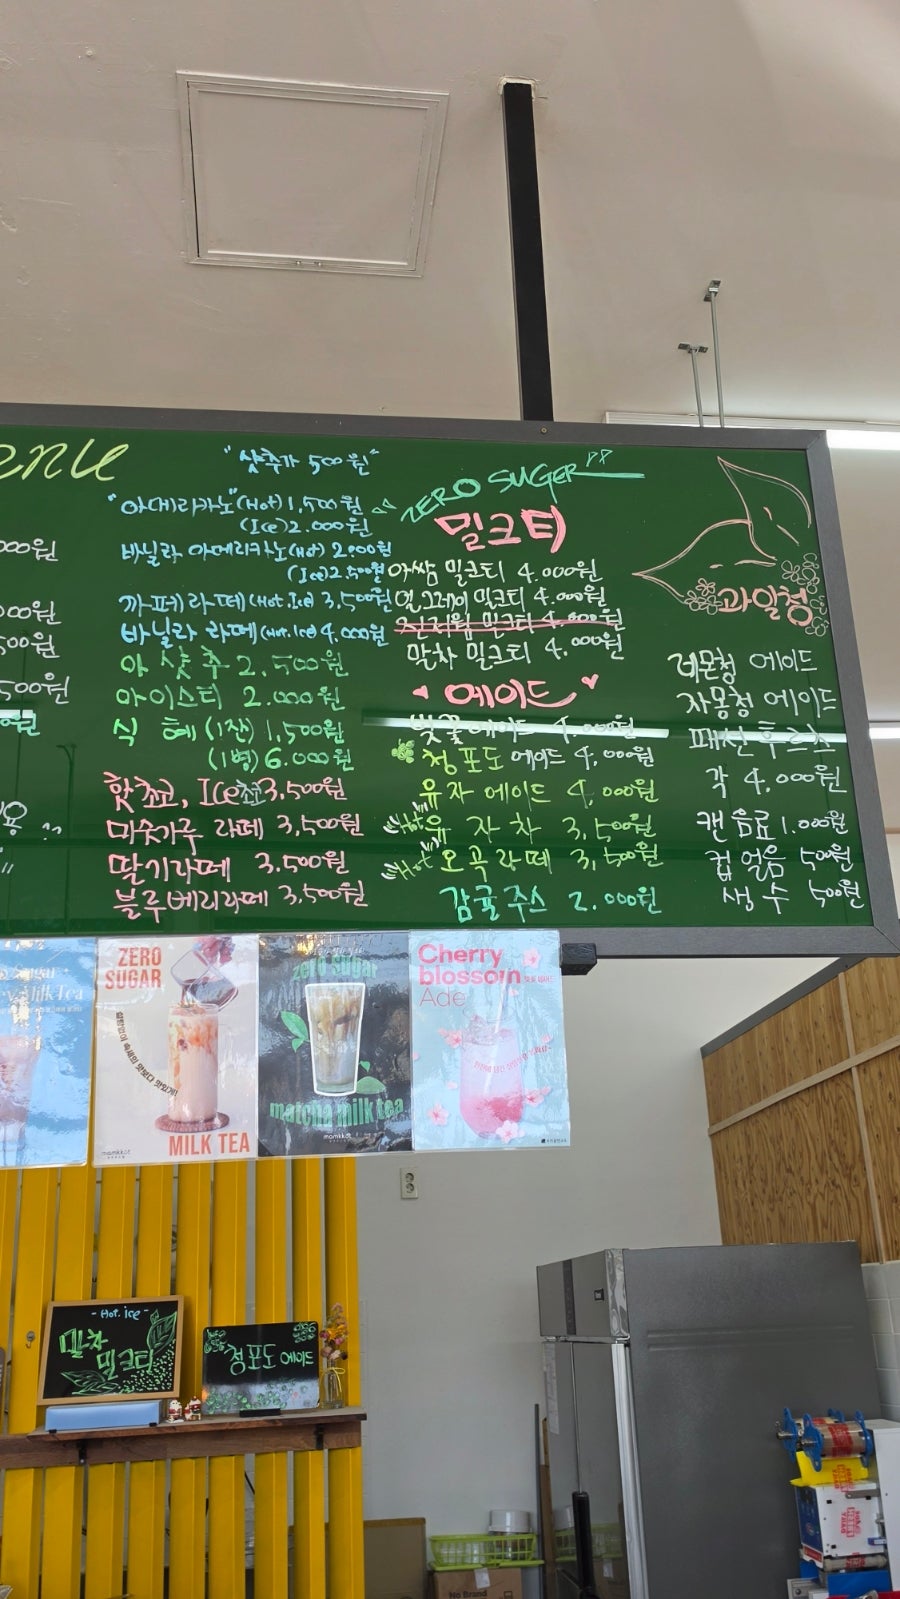 enu
000원
00원
500원
500원
용
"샷추가 500원"
"아메리카노"(Hot) 1,500원
(Ice) 2.000원
바닐라 아메리카노(Hot) 2.000원
(Ice) 2.500원
까페라떼(Hot.Ice) 3,500원
바닐라 라떼(Hot.Ice) 4,000원
아 샷 추 2.500원
아이스티 2.000원
식 혜 (1잔) 1,500원
(1병) 6.000원
핫쵸코, Ice쵸 3,500원
미숫가루 라떼 3,500원
딸기라떼 3.500원
블루베리라떼 3.500원
ZERO SUGER
밀크티
아쌈 밀크티 4.000원
얼그레이 밀크티 4.000원
밀크티 4.000원
말차 밀크티 4.000원
에이드
벚꽃에이드 4.000원
청포도 에이드 4,000원
유자에이드 4,000원
Hot 유 자 차 3,500원
Hot 오곡라떼 3,500원
감귤주스 2.000원
과일청
레몬청 에이드
자몽청 에이드
패션후르츠
각 4.000원
캔음료 1.000원
컵얼음 500원
생수 500원
Milk Tea
ZERO
SUGAR
MILK TEA
momkkot
zero sugar
matcha milk tea
momkkot
Cherry
blossom
Ade
벚꽃에이드
-Hot. ice-
말차
밀크티
청포도 에이드
No Brand